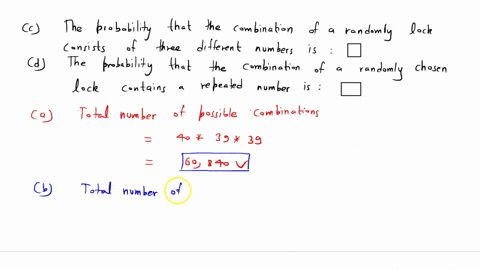 (c) The probability that the combination of a randomly lock
consists of three different numbers is :
(d) The probability that the combination of a randomly chosen
lock contains a repeated number is :
(a) Total number of possible combinations
= 40 * 39 * 39
= 60,840 ✓
(b) Total number of